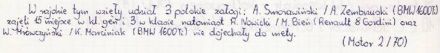 W rajdzie tym wzięły udział 3 polskie załogi: A. Smorawiński / A. Zembrzuski (BMW 1600Ti)
zajęli 15 miejsce w kl. gen. i 3 w klasie natomiast R. Nowicki / M. Bień (Renault 8 Gordini) oraz
W. / K. Marciniak (BMW 1600Ti) nie dojechały do mety.
(Motor 2/70)